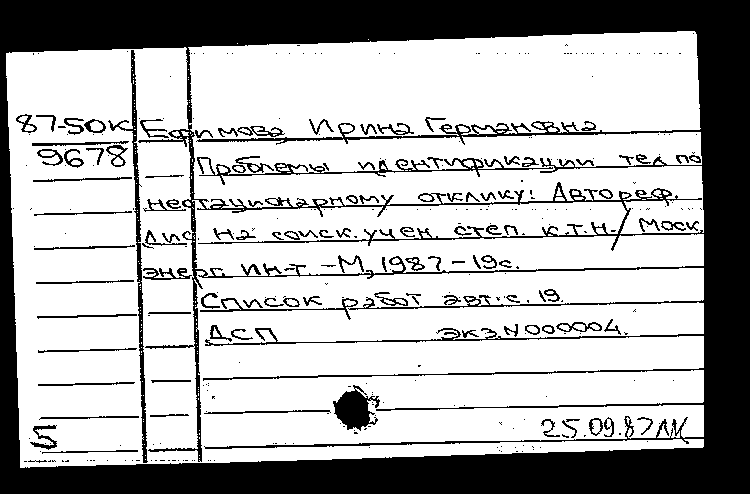 87-50К Ефимова Ирина Германовна
9678 Проблемы идентификации тел по
нестационарному отклику: Автореф.
дис на соиск. учен. степ. к.т.н. / Моск.
энерг. ин-т. -М, 1987 - 19с.
Список работ авт.: с. 19
ДСП экз. N 000004.
25.09.87